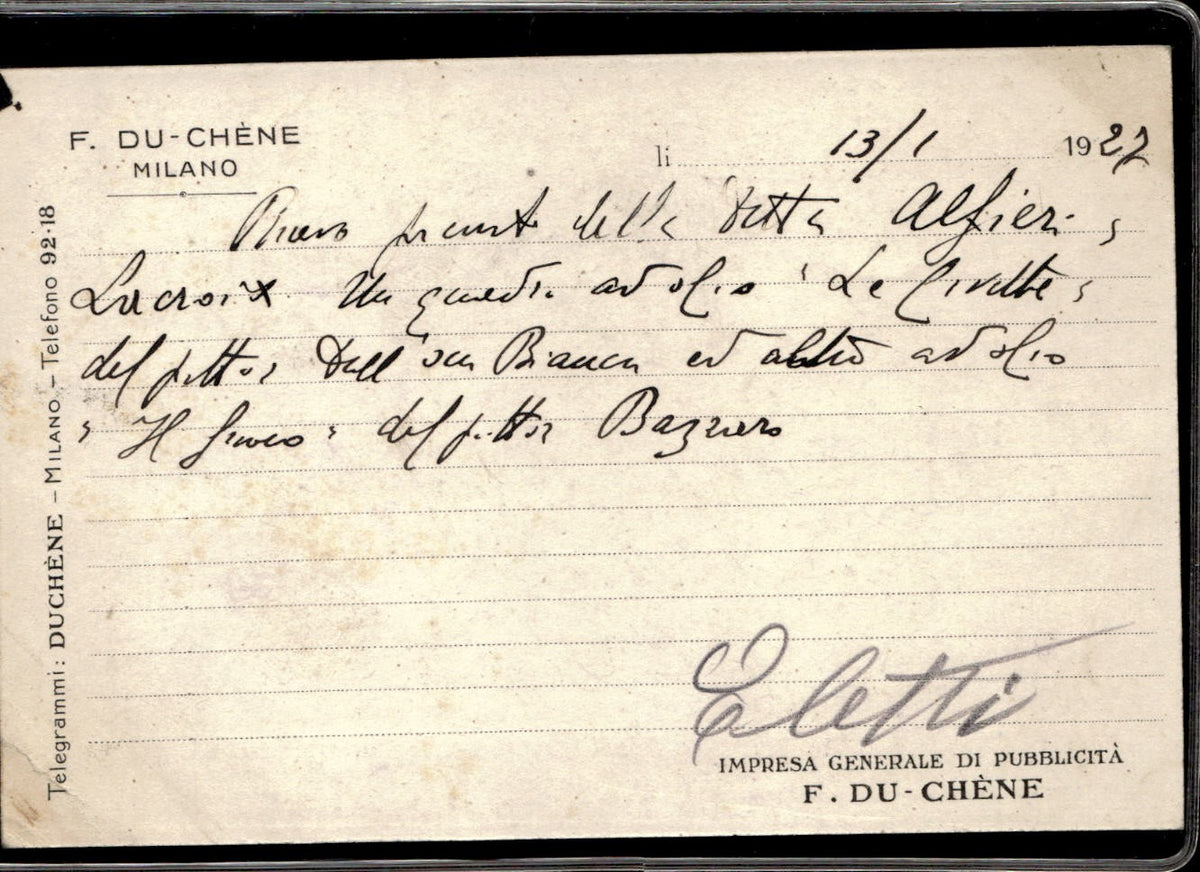 F. DU-CHÈNE
MILANO
li 13/1 1927
della Ditta Alfieri,
Lacroix Un quadro ad olio "Le Civette"
del pittor Dell'oca Bianca ed altro ad olio
"Il fuoco" del pittor Bazzaro
Eletti
IMPRESA GENERALE DI PUBBLICITÀ
F. DU-CHÈNE
Telegrammi: DUCHÈNE – MILANO – Telefono 92-18